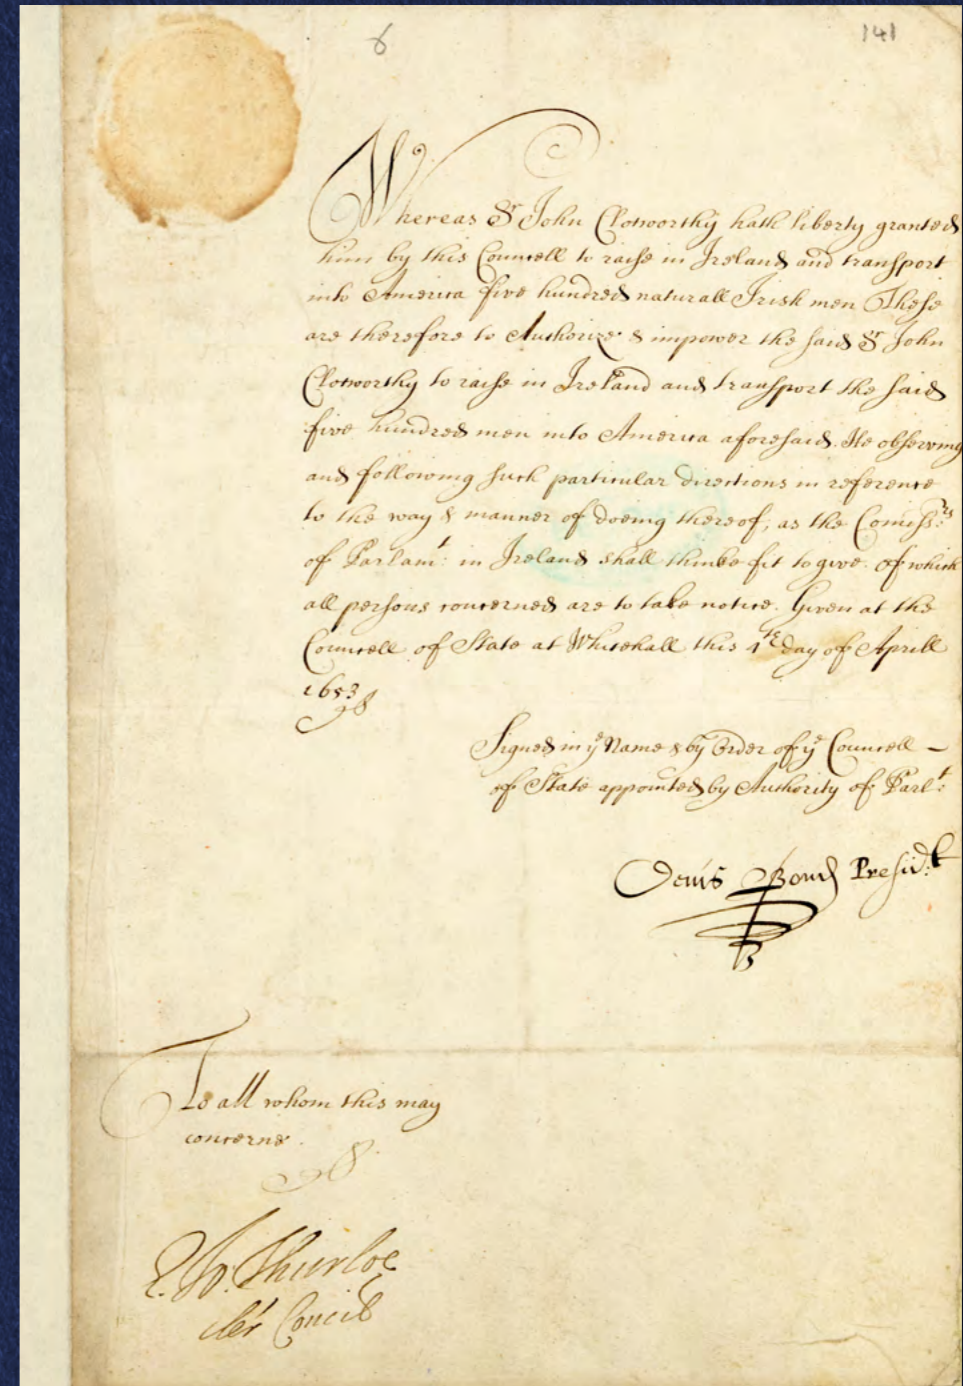 6
141
Whereas Sr John Clotworthy hath liberty granted
him by this Councell to raise in Ireland and transport
into America five hundred naturall Irish men These
are therefore to Authorize & impower the said Sr John
Clotworthy to raise in Ireland and transport the said
five hundred men into America aforesaid. He observing
and following such particular directions in reference
to the way & manner of doeing thereof, as the Comissrs
of Parlamt: in Ireland shall thinke fit to give. Of which
all persons concerned are to take notice. Given at the
Councell of State at Whitehall this 1th day of Aprill
1653
Signed in ye Name & by Order of ye Councell –
of State appointed by Authority of Parlt:
Denis Bond Presidt
To all whom this may
concerne.
Jo: Thurloe
Cler Concil